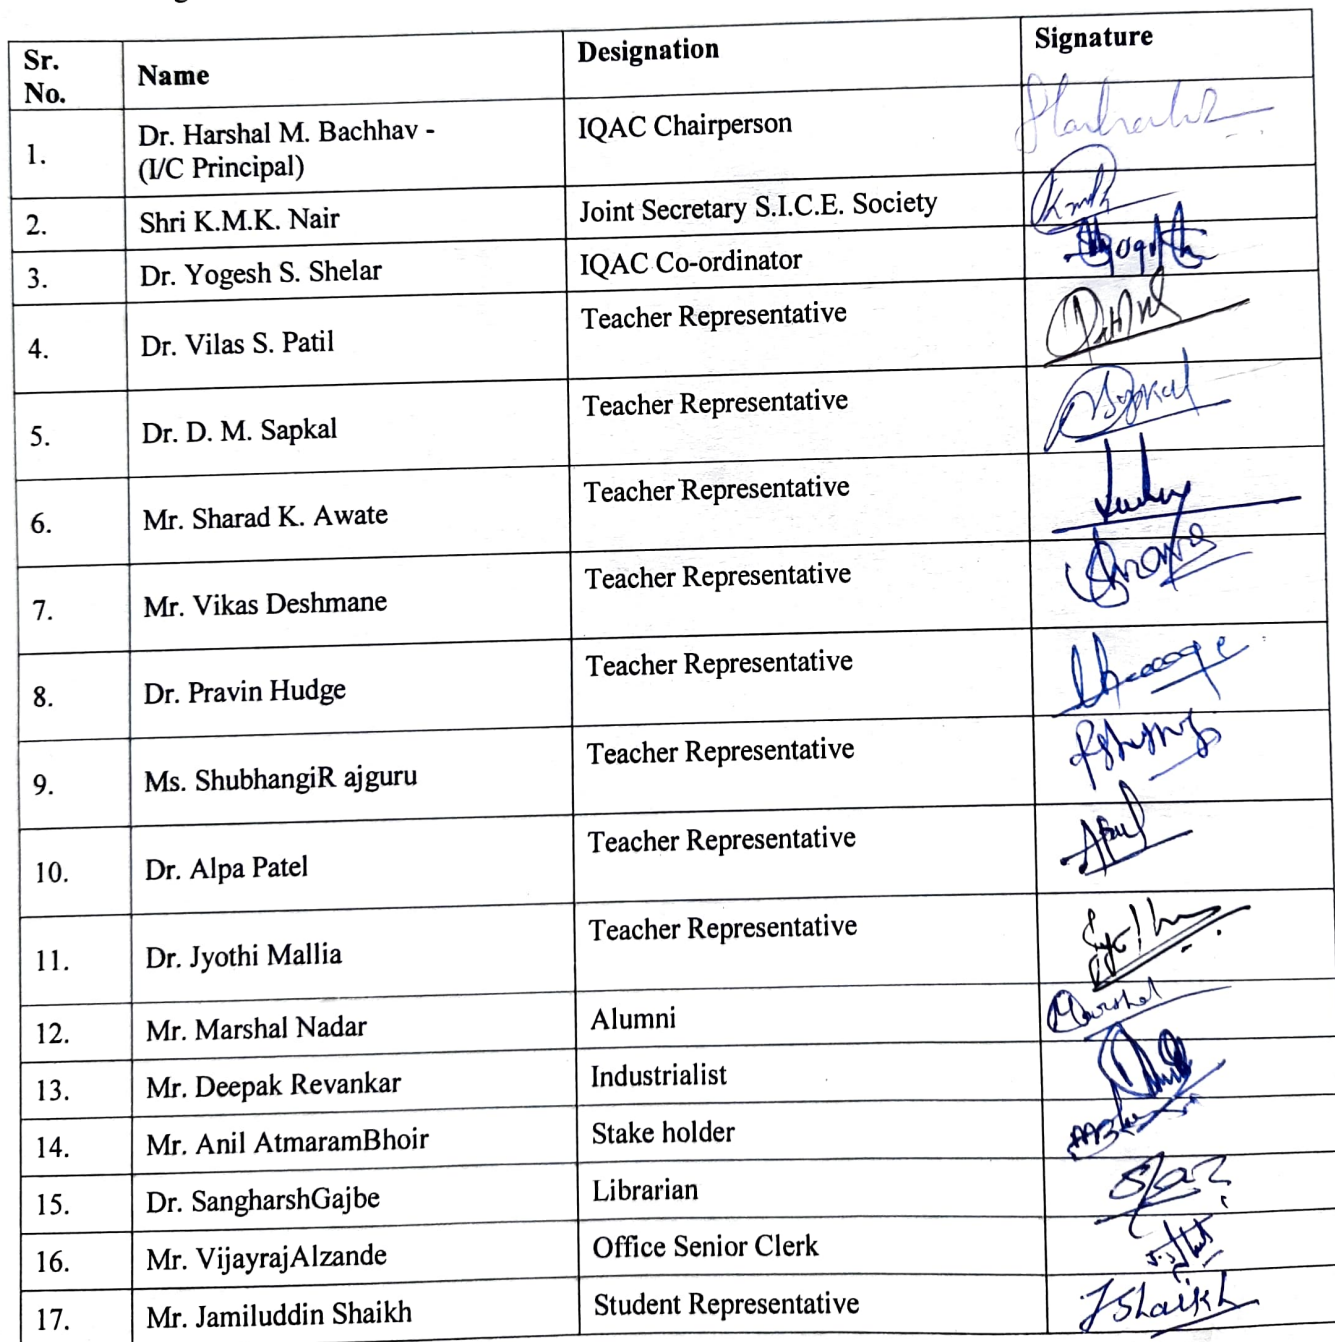 Sr. No. Name Designation Signature
1. Dr. Harshal M. Bachhav - IQAC Chairperson
(I/C Principal)
2. Shri K.M.K. Nair Joint Secretary S.I.C.E. Society
3. Dr. Yogesh S. Shelar IQAC Co-ordinator
4. Dr. Vilas S. Patil Teacher Representative
5. Dr. D. M. Sapkal Teacher Representative
6. Mr. Sharad K. Awate Teacher Representative
7. Mr. Vikas Deshmane Teacher Representative
8. Dr. Pravin Hudge Teacher Representative
9. Ms. ShubhangiR ajguru Teacher Representative
10. Dr. Alpa Patel Teacher Representative
11. Dr. Jyothi Mallia Teacher Representative
12. Mr. Marshal Nadar Alumni Marshal
13. Mr. Deepak Revankar Industrialist
14. Mr. Anil AtmaramBhoir Stake holder
15. Dr. SangharshGajbe Librarian
16. Mr. VijayrajAlzande Office Senior Clerk
17. Mr. Jamiluddin Shaikh Student Representative JShaikh